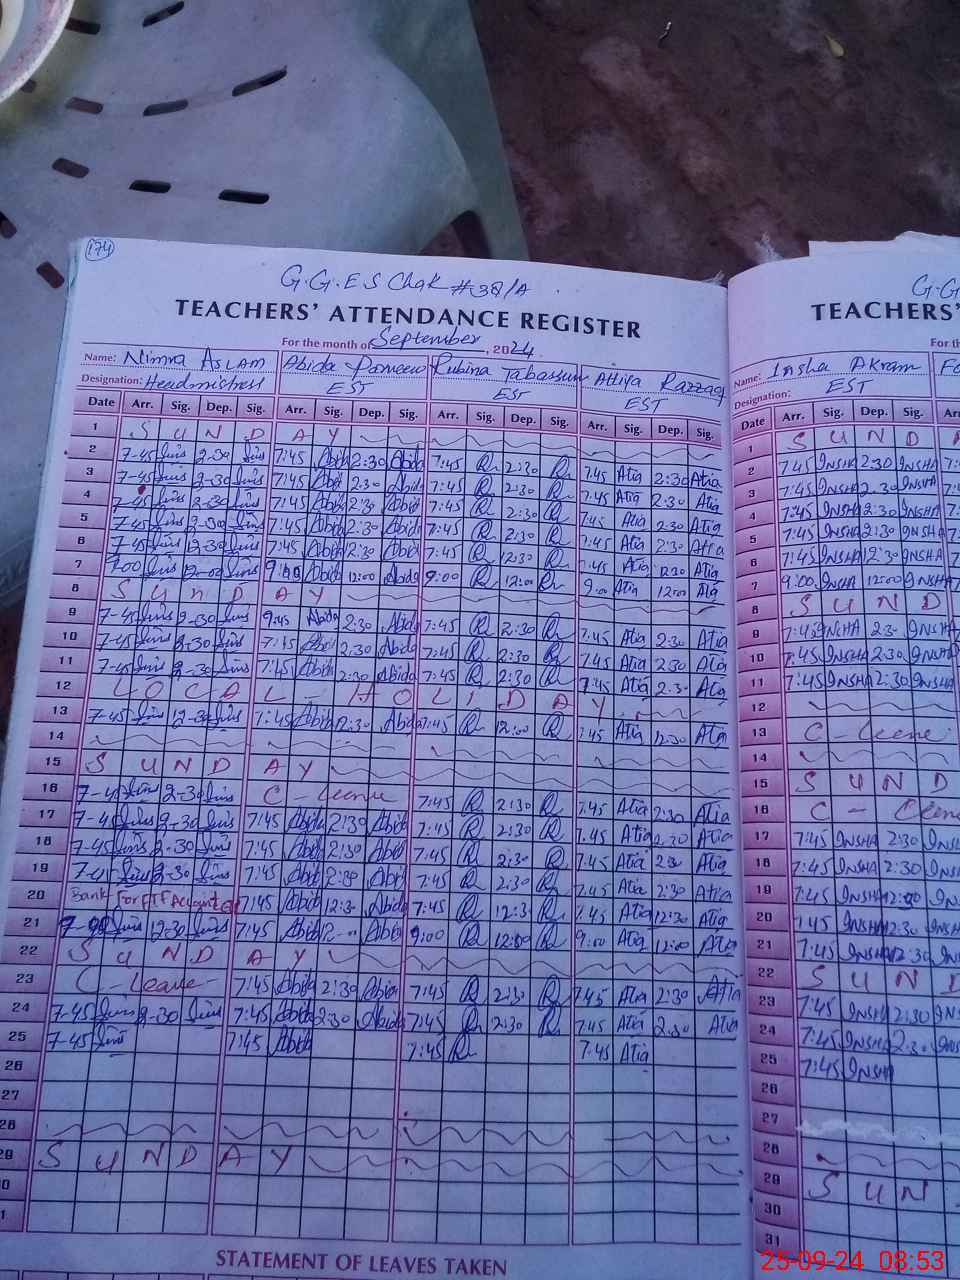 174
G.G.E.S Chak #38/A
TEACHERS' ATTENDANCE REGISTER
For the month of September, 2024
Name: Nimra ASLAM Abida Parveen Rubina Tabassum Attiya Razzaq
Designation: Headmistress EST EST EST
Date Arr. Sig. Dep. Sig. Arr. Sig. Dep. Sig. Arr. Sig. Dep. Sig. Arr. Sig. Dep. Sig.
1 S U N D A Y
2 7-45 2-30 7:45 Abida 2:30 Abida 7:45 R 2:30 R 7:45 Atia 2:30 Atia
3 7-45 2-30 7:45 Abida 2:30 Abida 7:45 R 2:30 R 7:45 Atia 2:30 Atia
4 7-45 2-30 7:45 Abida 2:30 Abida 7:45 R 2:30 R 7:45 Atia 2:30 Atia
5 7-45 2-30 7:45 Abida 2:30 Abida 7:45 R 2:30 R 7:45 Atia 2:30 Atia
6 7-45 12-30 7:45 Abida 12:30 Abida 7:45 R 12:30 R 7:45 Atia 12:30 Atia
7 12-00 Abida 12:00 Abida 9:00 R 12:00 R 9:00 Atia 12:00 Atia
8 S U N D A Y
9 7-45 2-30 Abida 2:30 Abida 7:45 R 2:30 R 7:45 Atia 2:30 Atia
10 7-45 2-30 7:45 Abida 2:30 Abida 7:45 R 2:30 R 7:45 Atia 2:30 Atia
11 7-45 2-30 7:45 Abida 2:30 Abida 7:45 R 2:30 R 7:45 Atia 2:30 Atia
12 LOCAL - HOLIDAY
13 7-45 12-30 7:45 Abida 12:30 Abida 7:45 R 12:00 R 7:45 Atia 12:30 Atia
14
15 S U N D A Y
16 7-45 2-30 C - Leave 7:45 R 2:30 R 7:45 Atia 2:30 Atia
17 7-45 2-30 7:45 Abida 2:30 Abida 7:45 R 2:30 R 7:45 Atia 2:30 Atia
18 7-45 2-30 7:45 Abida 2:30 Abida 7:45 R 2:30 R 7:45 Atia 2:30 Atia
19 7-45 2-30 7:45 Abida 2:30 Abida 7:45 R 2:30 R 7:45 Atia 2:30 Atia
20 Bank For FTF Account 7:45 Abida 12:30 Abida 7:45 R 12:30 R 7:45 Atia 12:30 Atia
21 12-30 7:45 Abida Abida 9:00 R 12:00 R 9:00 Atia 12:00 Atia
22 S U N D A Y
23 C - Leave 7:45 Abida 2:30 Abida 7:45 R 2:30 R 7:45 Atia 2:30 Atia
24 7-45 2-30 7:45 Abida 2:30 Abida 7:45 R 2:30 R 7:45 Atia 2:30 Atia
25 7-45 7:45 Abida 7:45 R 7:45 Atia
26
27
28
29 S U N D A Y
0
1
STATEMENT OF LEAVES TAKEN
G.G
TEACHERS'
For th
Name: Insha Akram
Designation: EST
Date Arr. Sig. Dep. Sig. Arr.
1 S U N D
2 7:45 INSHA 2:30 INSHA
3 7:45 INSHA 2:30 INSHA
4 7:45 INSHA 2:30 INSHA
5 7:45 INSHA 2:30 INSHA
6 7:45 INSHA 2:30 INSHA
7 9:00 INSHA 12:00 INSHA
8 S U N D
9 7:45 INSHA 2:30 INSHA
10 7:45 INSHA 2:30 INSHA
11 7:45 INSHA 2:30 INSHA
12
13 C - Leave
14
15 S U N D
16 C - Leave
17 7:45 INSHA 2:30 INS
18 7:45 INSHA 2:30 INS
19 7:45 INSHA INS
20 7:45 INSHA 12:30 INS
21 7:45 INSHA 12:30 IN
22 S U N D
23 7:45 INSHA 2:30 IN
24 7:45 INSHA 2:30 INS
25 7:45 INSHA
26
27
28
29 S U N
30
31
25-09-24 08:53